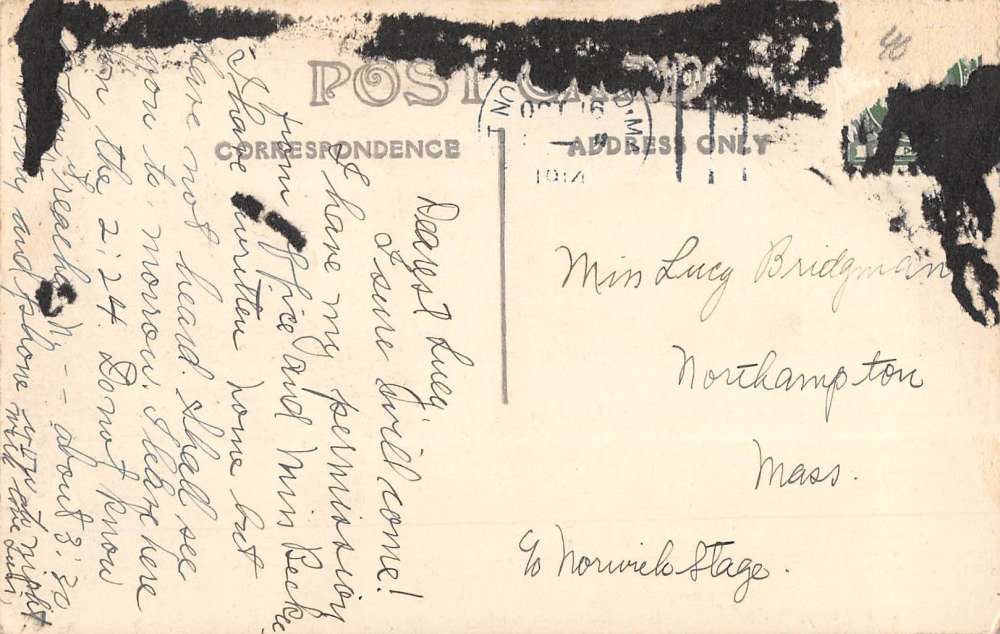 POST CARD
CORRESPONDENCE
ADDRESS ONLY
OCT 15
1914
Dearest Lucy
I sure will come!
I have my permission
from Office and Miss
I have written home but
have not heard. Shall see
you to-morrow. I leave here
on the 2:24. Do not know
when I reach -- about 3:30
and phone
with love
Miss Lucy Bridgman
Northampton
Mass.
c/o Norwich Stage.